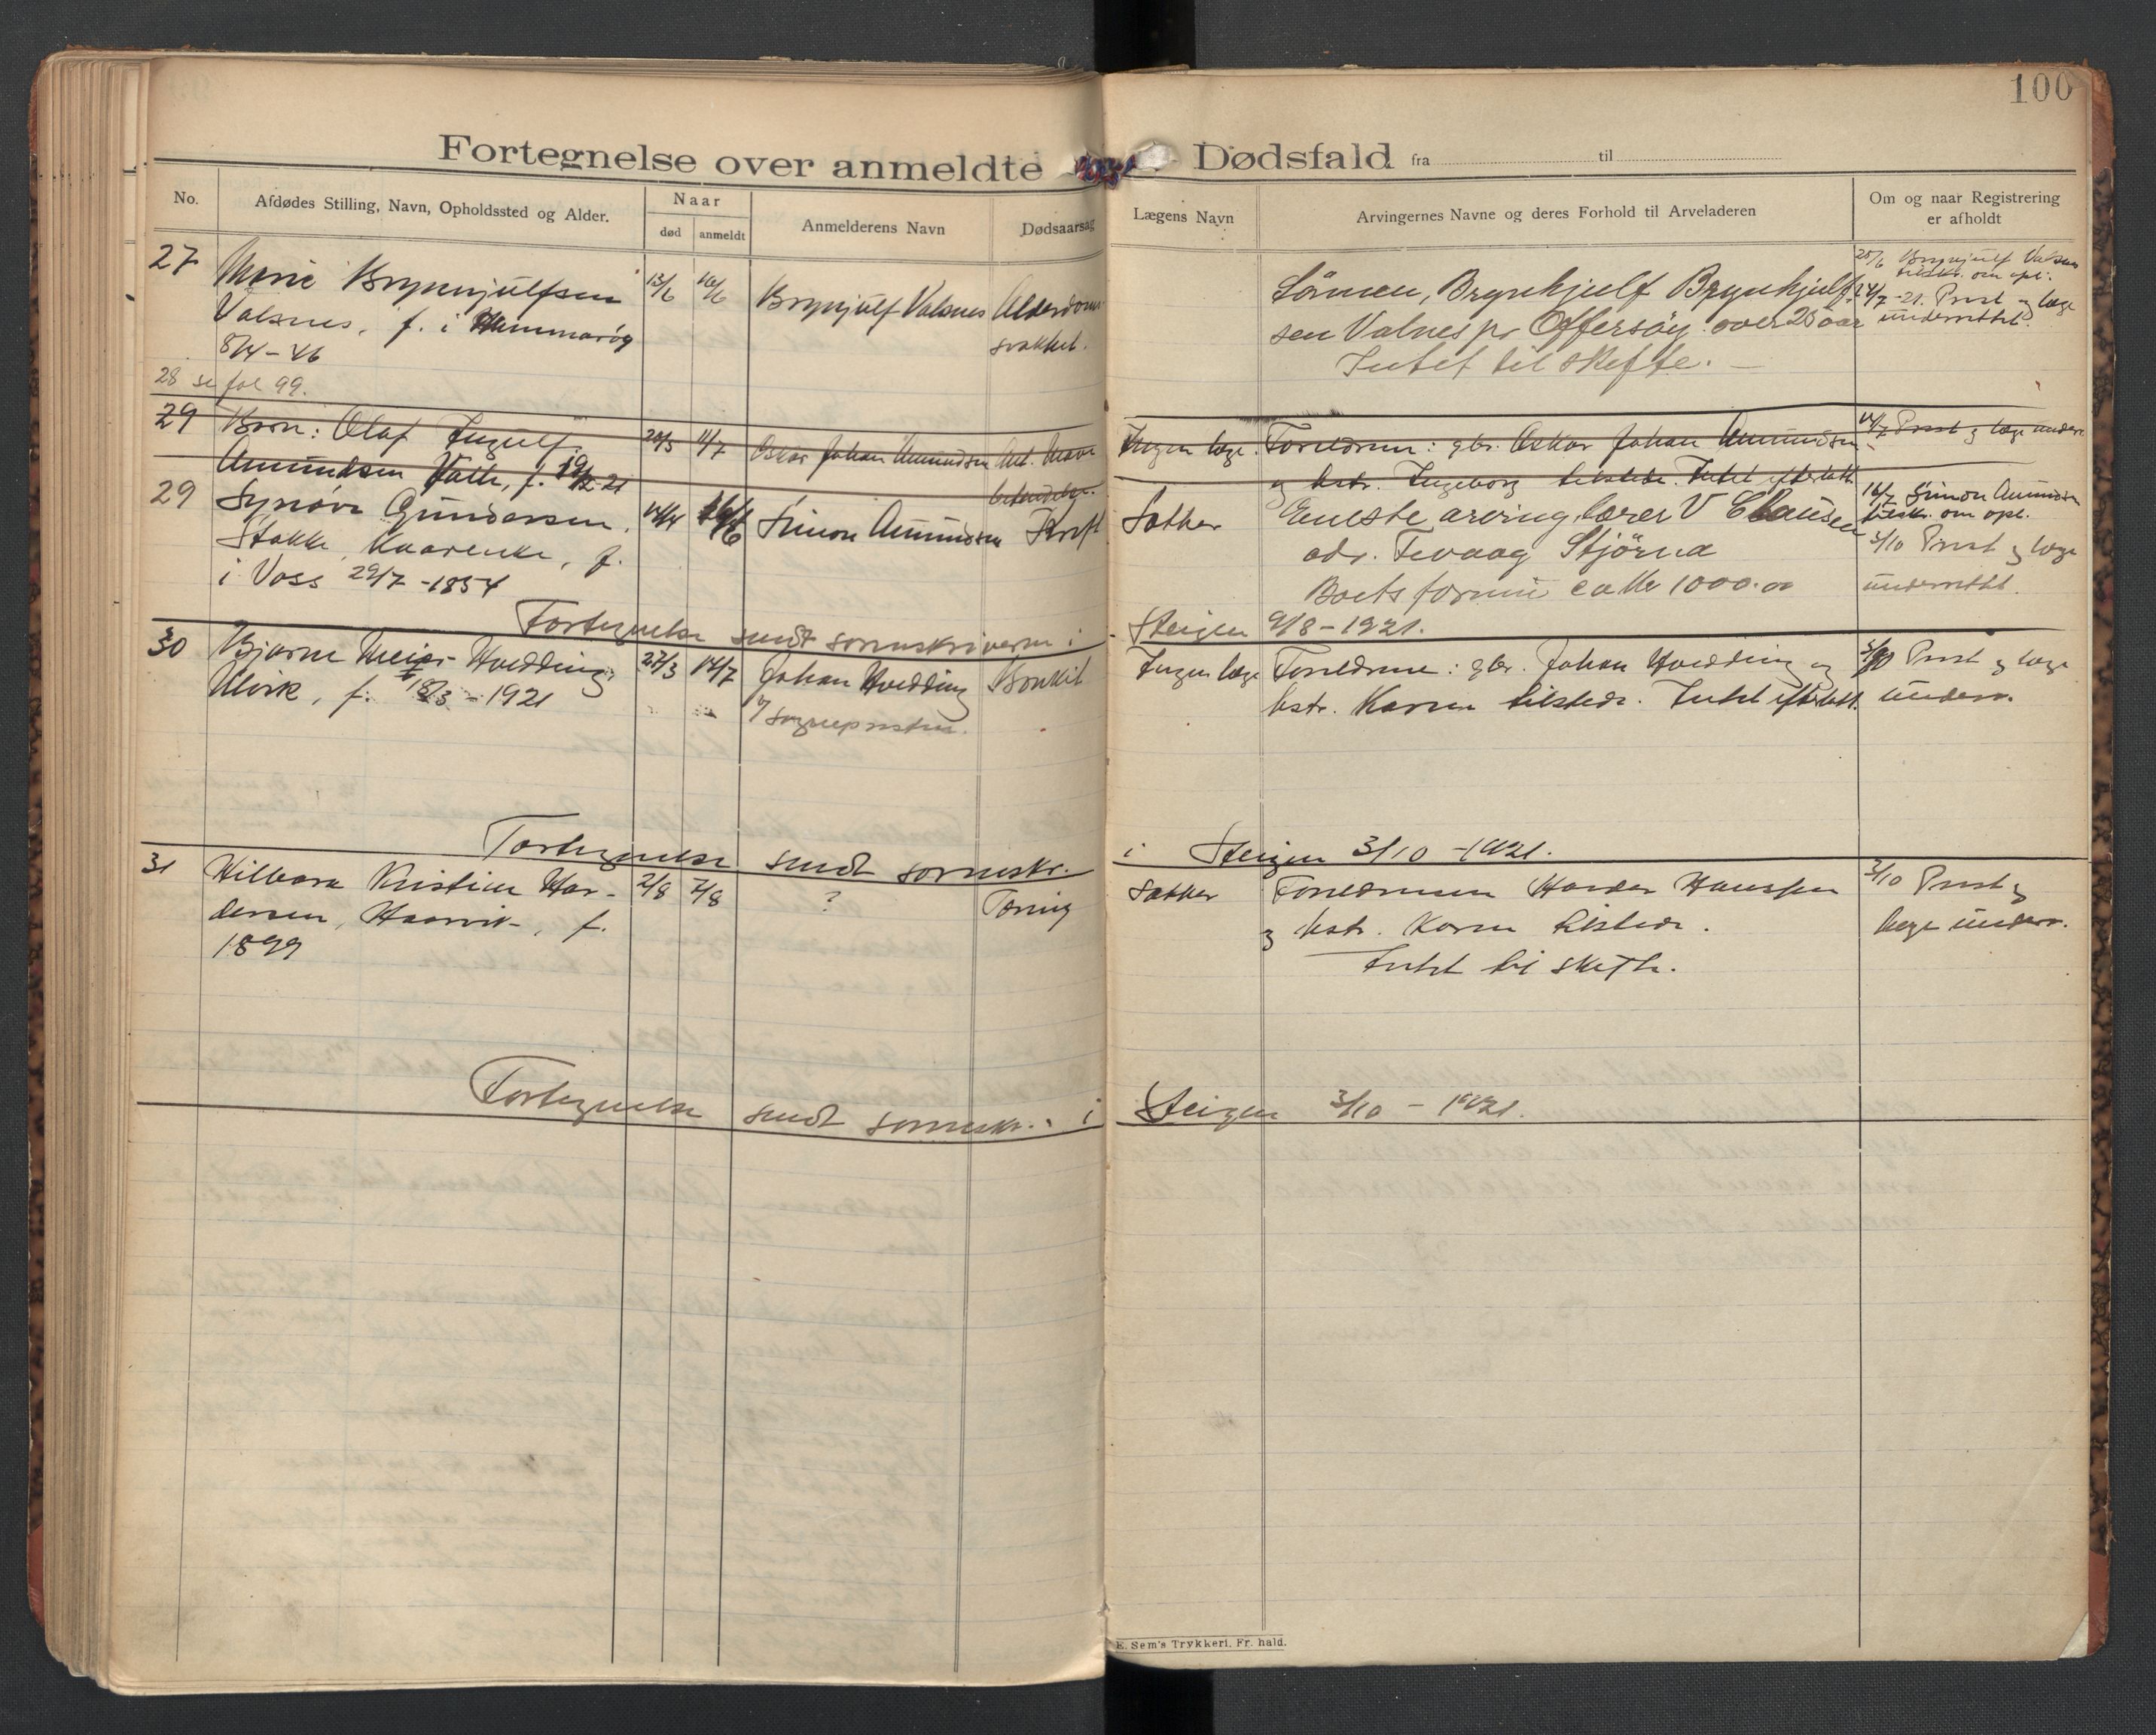 100
Fortegnelse over anmeldte Dødsfald fra til
No.
Afdødes Stilling, Navn, Opholdssted og Alder.
Naar
død
anmeldt
Anmelderens Navn
Dødsaarsag
Lægens Navn
Arvingernes Navne og deres Forhold til Arveladeren
Om og naar Registrering
er afholdt
27
Marie Brynhjulfsen
Valsnes, f. i Hammarøy
8/4-46
13/6
16/6
Brynjulf Valsnes
Alderdoms
svakhet.
Sönnen, Brynhjulf Brynhjulf
sen Valnes pr Offersøy: over 25 aar
Intet til skifte. -
28/6 Brynjulf Valsnes
tilskr. om opl.
14/7-21. Prest og læge
underrettet.
28 se fol 99.
29
Barn: Olaf Ingulf
Amundsen Valle, f. 19/2-21
20/5
11/7
Oskar Johan Amundsen
Ant. Mave
betendelse.
Ingen læge.
Foreldrene: gbr. Oskar Johan Amundsen
og hstr. Ingeborg tilstede. Intet efterlatt
14/7 Prest og læge underr.
29
Synöve Gundersen
Stokke, Kaarenke, f.
i Voss 29/7-1854
14/4
16/6
Simon Amundsen
Kreft
Sather
Eneste arving lærer V Clausen
adr. Tevaag Stjörna
Boets formue ca kr 1000.00
16/7 Simon Amundsen
tilskr. om opl.
3/10 Prest og læge
underrettet.
Fortegnelse sendt sorenskriveren i Steigen 9/8-1921.
30
Bjarne Meier Hvedding,
Ulvik, f. 18/3-1921
27/3
14/7
Johan Hvedding
Sognepresten.
Bronkit
Ingen læge
Foreldrene: gbr. Johan Hvedding og
hstr. Karen tilstede. Intet efterlatt.
3/10 Prest og læge
underr.
Fortegnelse sendt sorenskr. i Steigen 3/10-1921.
31
Hilbora Kristine Har-
dersen, Haarvik, f.
1899
2/8
7/8
?
Tæring
Sather
Foreldrenen Harder Hanssen
og hstr. Karen tilstede.
Intet til skifte.
3/10 Prest og
læge underr.
Fortegnelse sendt sorenskr. i Steigen 3/10-1921.
E. Sem's Trykkeri, Fr. hald.